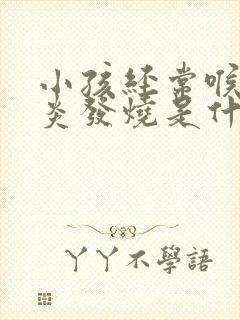 小孩經常喉
炎發燒是什
丫丫不學語